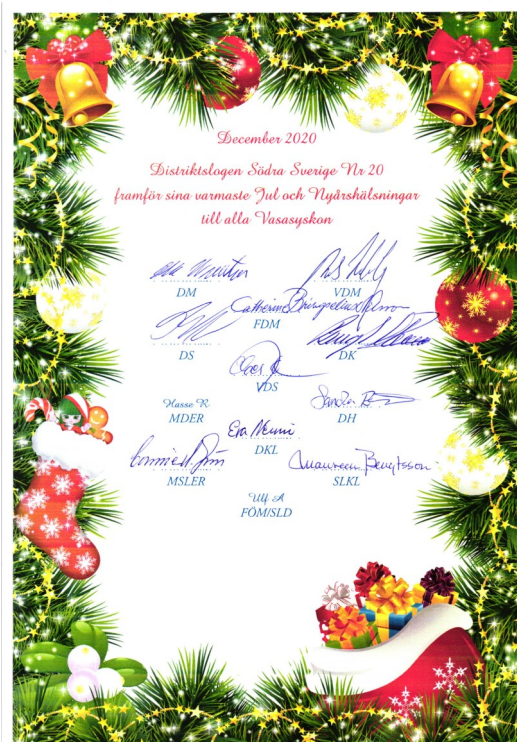 December 2020
Distriktslogen Södra Sverige Nr 20
framför sina varmaste Jul och Nyårshälsningar
till alla Vasasyskon
DM VDM
Catherine
FDM
DS DK
VDS
Hasse R
MDER DH
Eva
DKL
Maureen Bengtsson
MSLER SLKL
Ulf A
FÖM/SLD